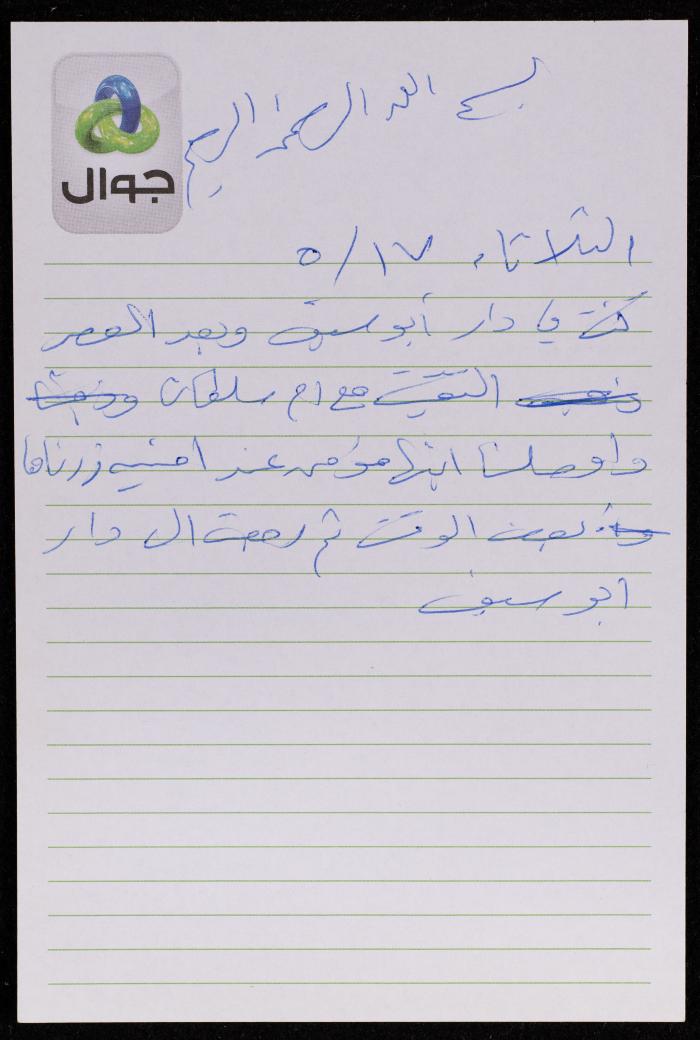 جوال
بسم الله الرحمن الرحيم
الثلاثاء ١٧/٥
كنت في دار أبو سيف وبعد العصر
التقيت مع ام سلطان
واوصلنا ابنها مؤمن عند امنيه زرناها
بعض الوقت ثم رجعت ال دار
ابو سيف